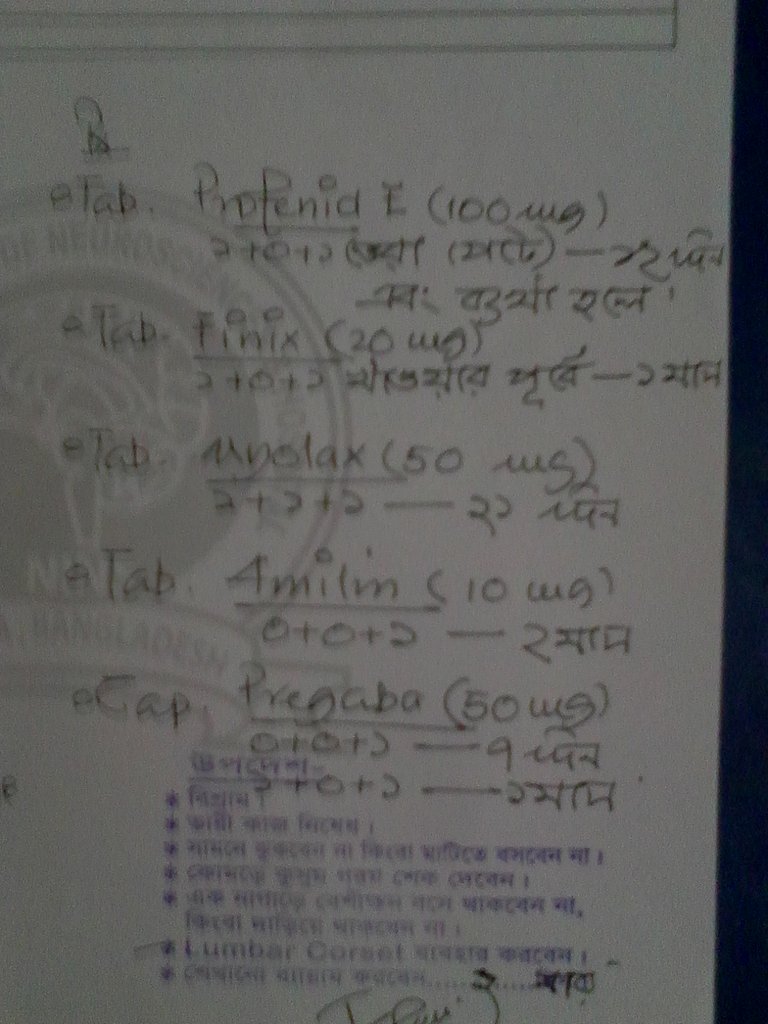 Rx
Tab. Profenid E (100 mg)
১+০+১ (ভরা পেটে) —
ব্যথা হলে।
Tab. Finix (20 mg)
১+০+১ খাওয়ার পূর্বে — ১ মাস
Tab. Myolax (50 mg)
১+১+১ — ২১ দিন
Tab. Amilin (10 mg)
০+০+১ — ২ মাস
Cap. Pregaba (50 mg)
০+০+১ — ৭ দিন
১+০+১ — ১ মাস
উপদেশ:-
* বিশ্রাম।
* ভারী কাজ নিষেধ।
* সামনে ঝুকবেন না কিংবা মাটিতে বসবেন না।
* কোমড়ে কুসুম গরম শেক দেবেন।
* এক নাগাড়ে বেশীক্ষন বসে থাকবেন না,
কিংবা দাড়িয়ে থাকবেন না।
* Lumbar Corset ব্যবহার করবেন।
* শেখানো ব্যায়াম করবেন.....
OF NEURO
BANGLADESH